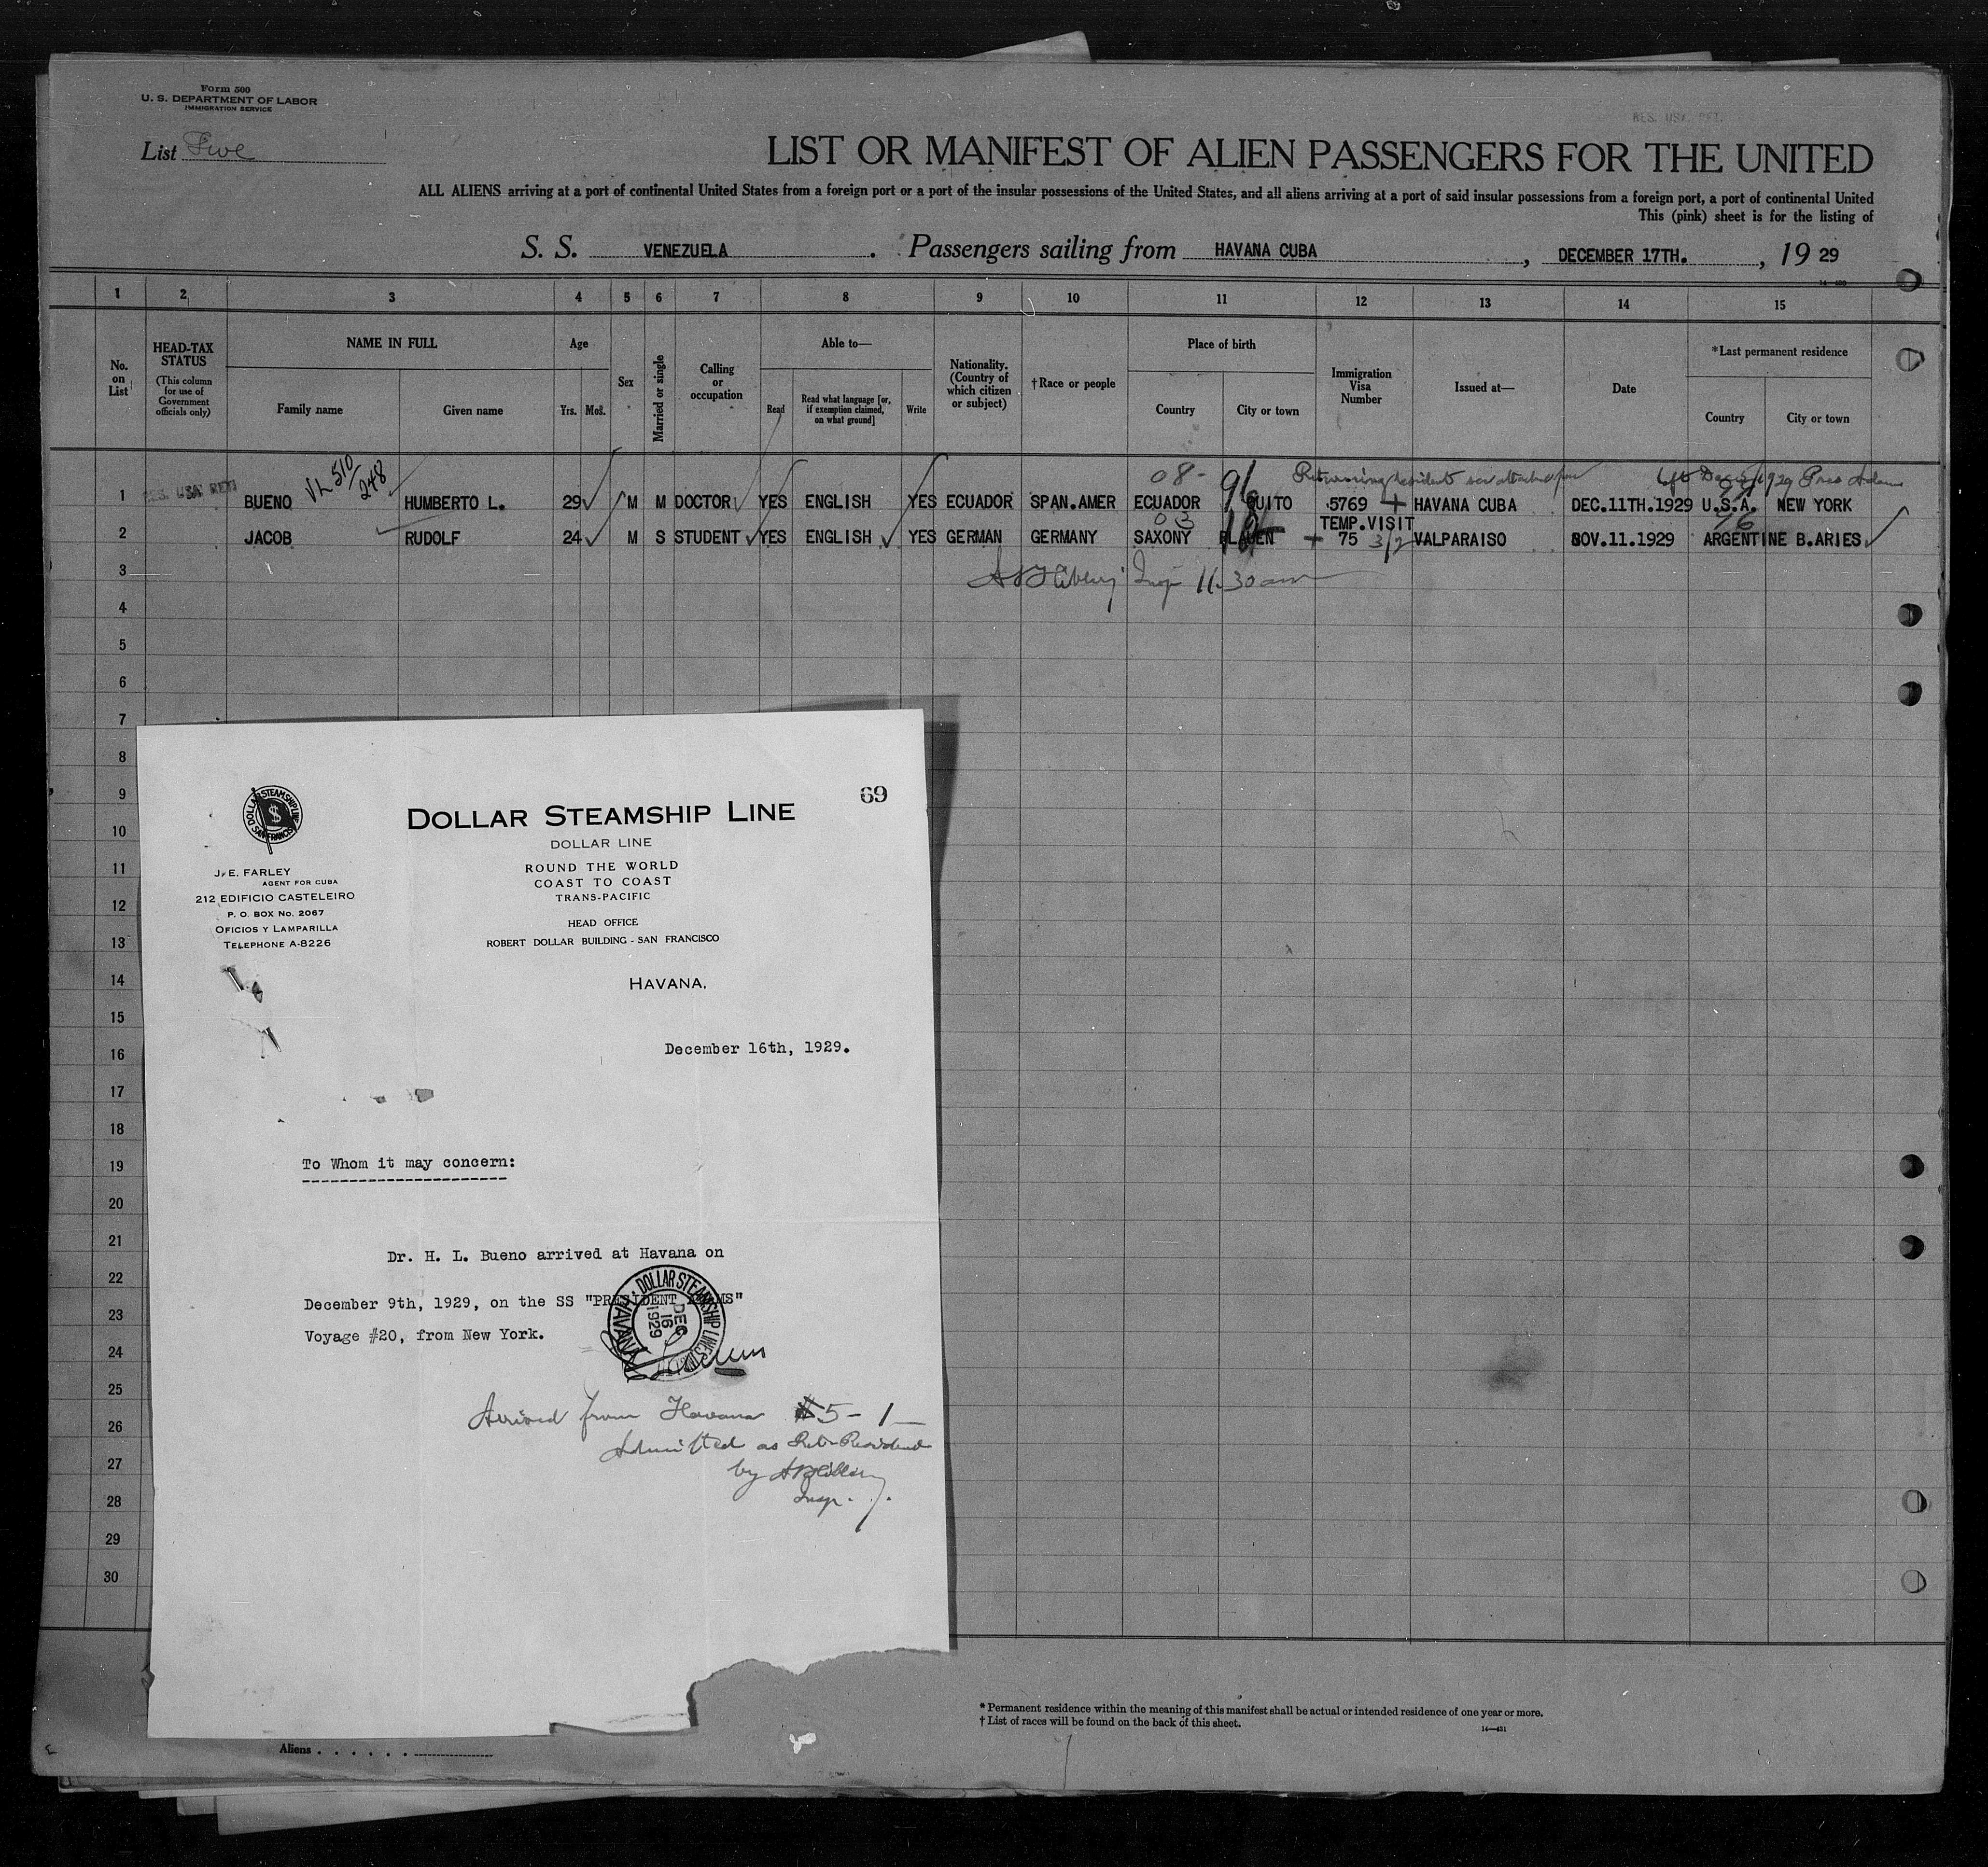 Form 500
U. S. DEPARTMENT OF LABOR
IMMIGRATION SERVICE
RES. USA. RET.
List Five
LIST OR MANIFEST OF ALIEN PASSENGERS FOR THE UNITED
ALL ALIENS arriving at a port of continental United States from a foreign port or a port of the insular possessions of the United States, and all aliens arriving at a port of said insular possessions from a foreign port, a port of continental United
This (pink) sheet is for the listing of
S. S. VENEZUELA. Passengers sailing from HAVANA CUBA, DECEMBER 17TH., 1929
1 2 3 4 5 6 7 8 9 10 11 12 13 14 15
No. on List
HEAD-TAX STATUS
(This column for use of Government officials only)
NAME IN FULL
Family name Given name
Age
Yrs. Mos.
Sex
Married or single
Calling or occupation
Able to—
Read
Read what language [or, if exemption claimed, on what ground]
Write
Nationality. (Country of which citizen or subject)
†Race or people
Place of birth
Country City or town
Immigration Visa Number
Issued at—
Date
*Last permanent residence
Country City or town
VL 510/248
08- 96 Returning resident Left Dec 1929 Pres Adams 99
1 RES. USA RET. BUENO HUMBERTO L. 29 M M DOCTOR YES ENGLISH YES ECUADOR SPAN.AMER ECUADOR QUITO 5769 HAVANA CUBA DEC.11TH.1929 U.S.A. NEW YORK
03 TEMP.VISIT 96
2 JACOB RUDOLF 24 M S STUDENT YES ENGLISH YES GERMAN GERMANY SAXONY 75 3/2 VALPARAISO NOV.11.1929 ARGENTINE B.ARIES
3 Insp 11.30 am
4
5
6
7
8
9
10
11
12
13
14
15
16
17
18
19
20
21
22
23
24
25
26
27
28
29
30
69
DOLLAR STEAMSHIP LINE
SAN FRANCISCO
$
DOLLAR STEAMSHIP LINE
DOLLAR LINE
ROUND THE WORLD
COAST TO COAST
TRANS-PACIFIC
HEAD OFFICE
ROBERT DOLLAR BUILDING - SAN FRANCISCO
J. E. FARLEY
AGENT FOR CUBA
212 EDIFICIO CASTELEIRO
P. O. BOX No. 2067
OFICIOS Y LAMPARILLA
TELEPHONE A-8226
HAVANA,
December 16th, 1929.
To Whom it may concern:
Dr. H. L. Bueno arrived at Havana on
December 9th, 1929, on the SS "PRESIDENT ADAMS"
Voyage #20, from New York.
DOLLAR STEAMSHIP LINES
HAVANA
DEC 16 1929
Arrived from Havana 5-1
Admitted as Ret. Resident
by
Insp.
* Permanent residence within the meaning of this manifest shall be actual or intended residence of one year or more.
† List of races will be found on the back of this sheet.
14—431
Aliens